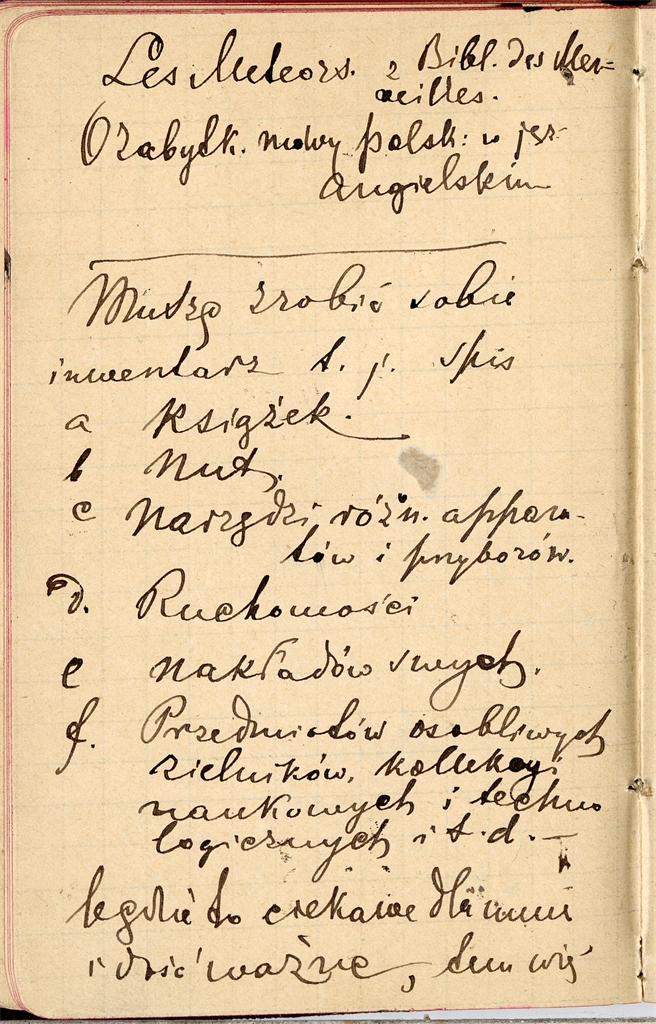 Les Meteors. z Bibl. des Mer=
veilles.
O zabytk. mowy polsk: w jęz
angielskim
Muszę zrobić sobie
inwentarz t. j. spis
a książek.
b nut.
c narzędzi różn. appara-
tów i przyborów.
d. Ruchomości
e nakładów swych.
f. Przedmiotów osobliwych
zielników, kollekcyi
naukowych i techno
logicznych i t. d. —
będzie to ciekawe dla mnie
i dość ważne, tem wię